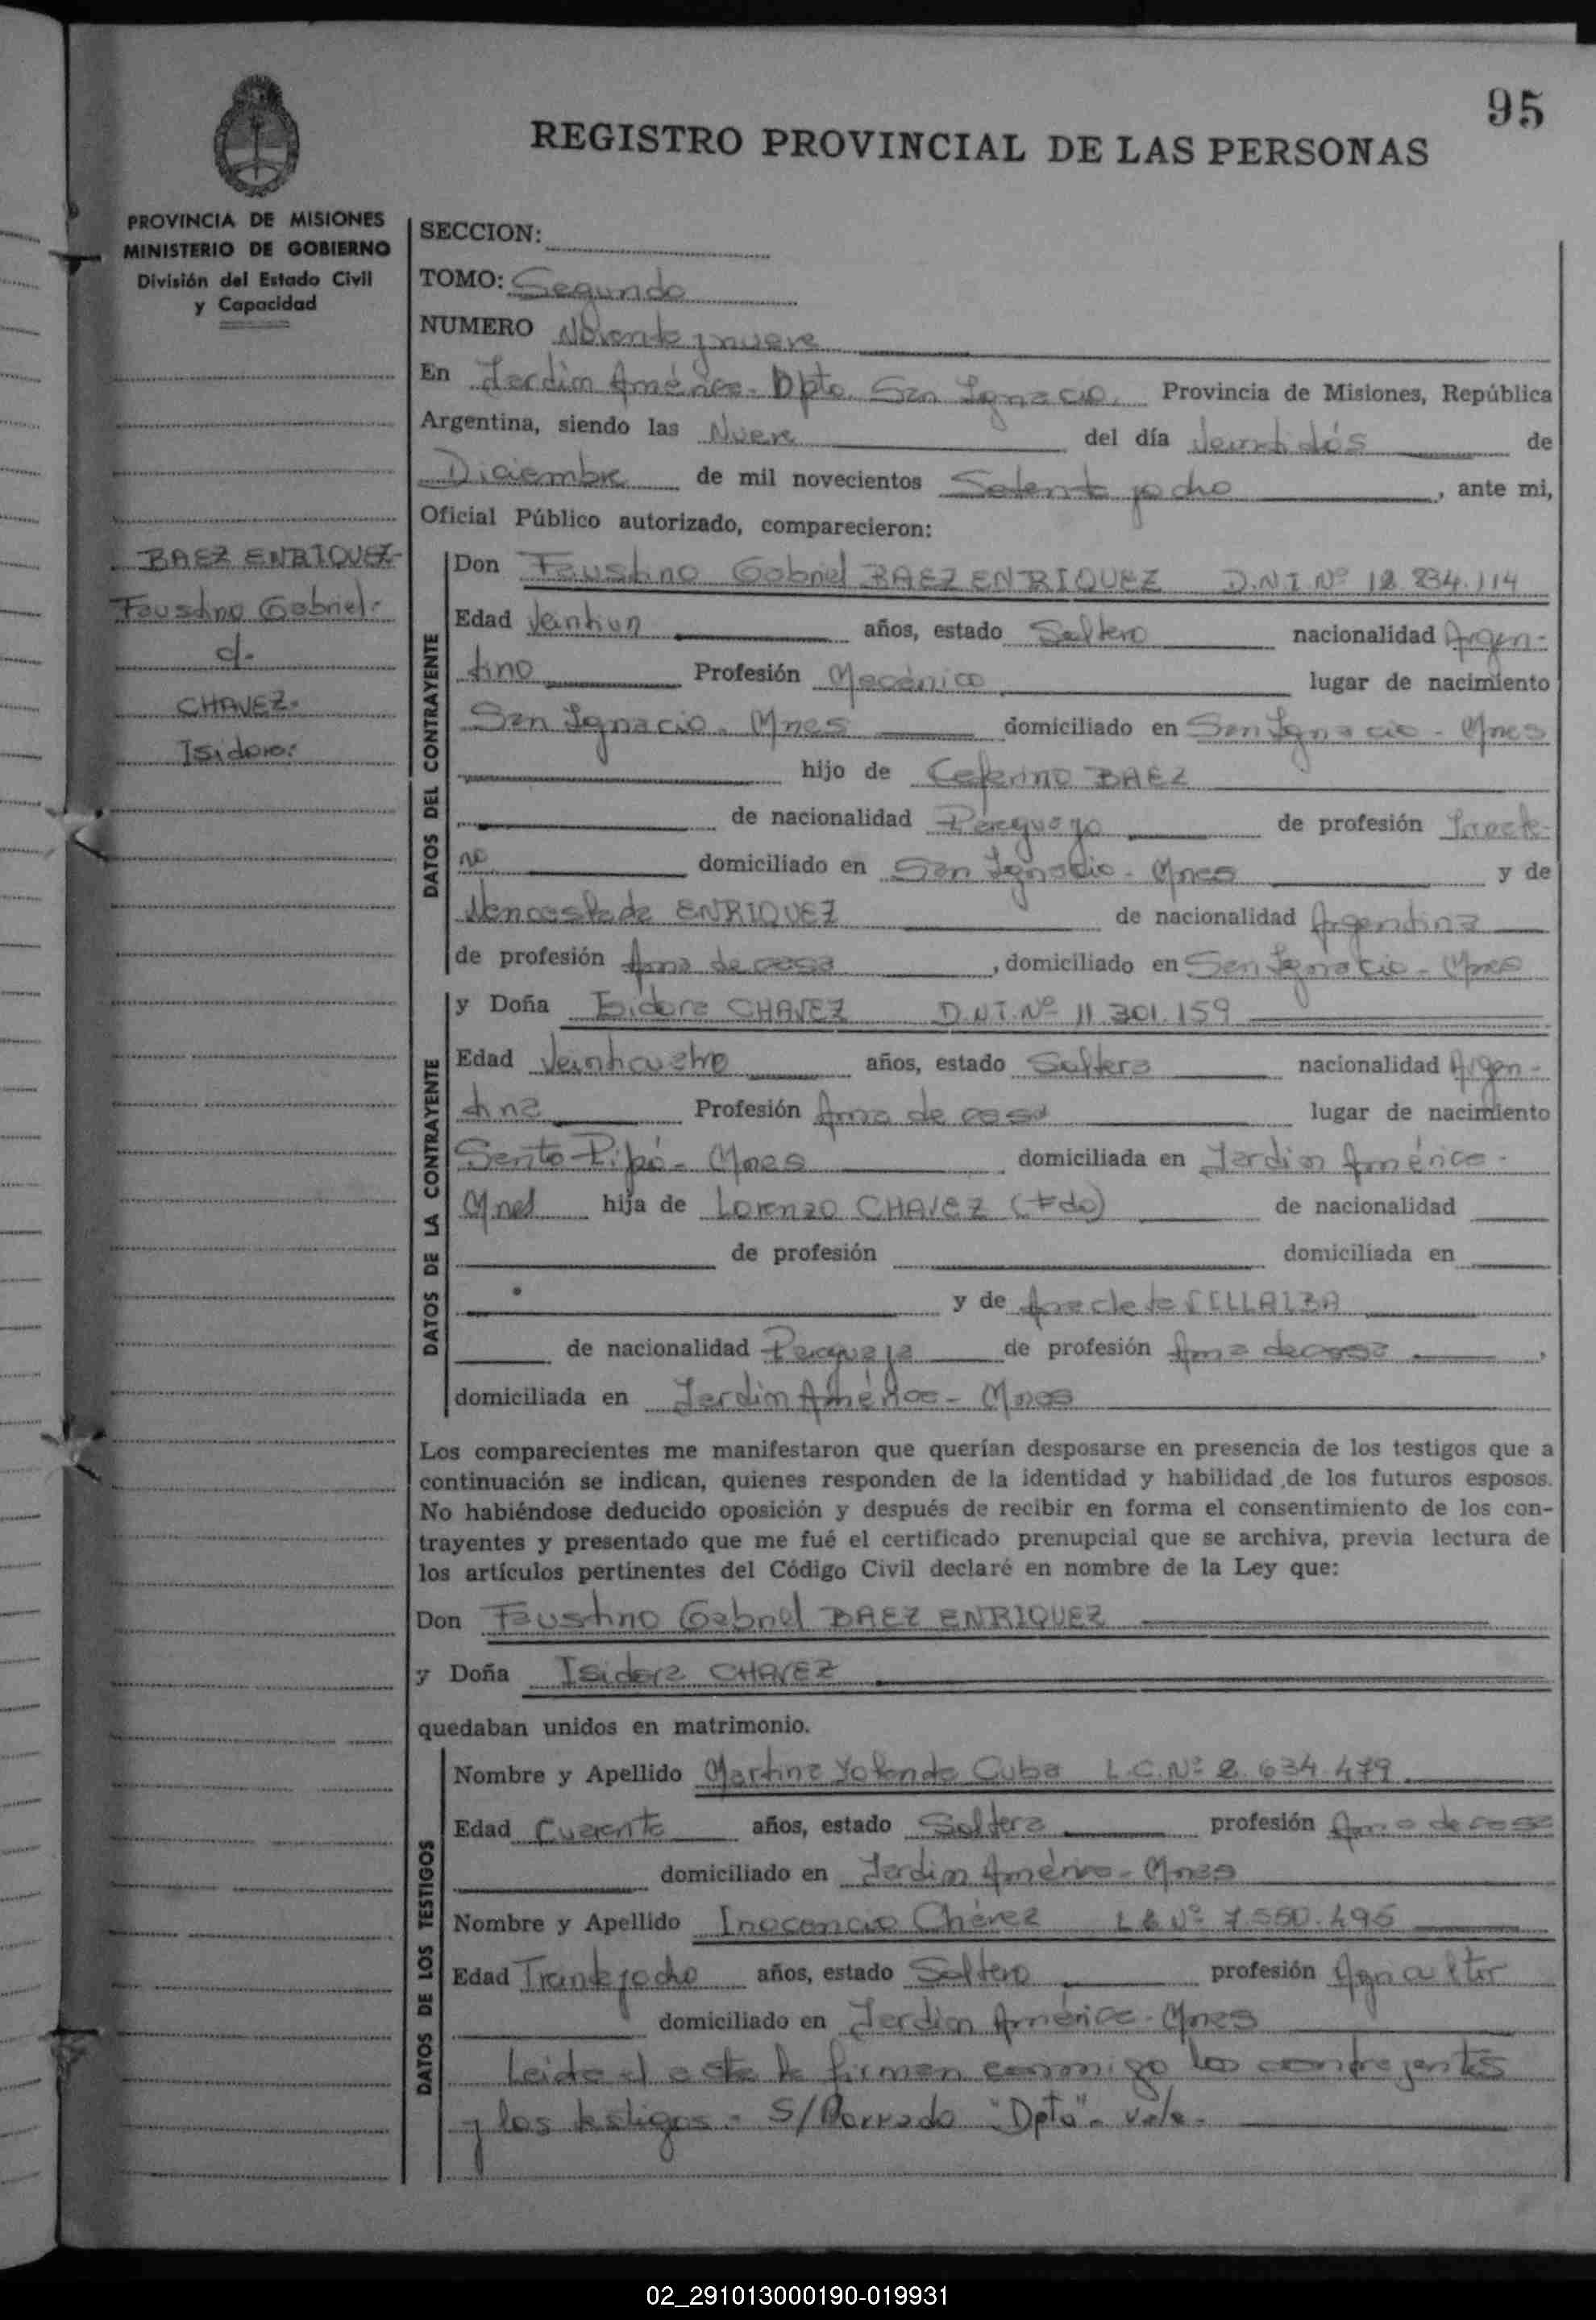 95
REGISTRO PROVINCIAL DE LAS PERSONAS
PROVINCIA DE MISIONES
MINISTERIO DE GOBIERNO
División del Estado Civil
y Capacidad
BAEZ ENRIQUEZ
Faustino Gabriel.
c/.
CHAVEZ.
Isidora.
SECCION:
TOMO: Segundo
NUMERO Noventa y nueve
En Jardin América - Dpto. San Ignacio. Provincia de Misiones, República
Argentina, siendo las Nueve del día Veintidós de
Diciembre de mil novecientos Setenta y ocho, ante mi,
Oficial Público autorizado, comparecieron:
DATOS DEL CONTRAYENTE
Don Faustino Gabriel BAEZ ENRIQUEZ D.N.I. Nº 12.834.114
Edad Veintiun años, estado Soltero nacionalidad Argen-
tino Profesión Mecánico lugar de nacimiento
San Ignacio - Mnes domiciliado en San Ignacio - Mnes
hijo de Ceferino BAEZ
de nacionalidad Paraguayo de profesión
domiciliado en San Ignacio - Mnes y de
Wenceslada ENRIQUEZ de nacionalidad Argentina
de profesión Ama de casa, domiciliado en San Ignacio - Mnes
DATOS DE LA CONTRAYENTE
y Doña Isidora CHAVEZ D.N.I. Nº 11.301.159
Edad Veinticuatro años, estado Soltera nacionalidad Argen-
tina Profesión Ama de casa lugar de nacimiento
Santo Pipó - Mnes domiciliada en Jardin América -
Mnes hija de Lorenzo CHAVEZ (Fdo) de nacionalidad
de profesión domiciliada en
y de Anacleta VILLALBA
de nacionalidad Paraguaya de profesión Ama de casa,
domiciliada en Jardin América - Mnes
Los comparecientes me manifestaron que querían desposarse en presencia de los testigos que a
continuación se indican, quienes responden de la identidad y habilidad de los futuros esposos.
No habiéndose deducido oposición y después de recibir en forma el consentimiento de los con-
trayentes y presentado que me fué el certificado prenupcial que se archiva, previa lectura de
los artículos pertinentes del Código Civil declaré en nombre de la Ley que:
Don Faustino Gabriel BAEZ ENRIQUEZ
y Doña Isidora CHAVEZ
quedaban unidos en matrimonio.
DATOS DE LOS TESTIGOS
Nombre y Apellido Martina Yolanda Cuba L.C. Nº 2.634.479
Edad Cuarenta años, estado Soltera profesión Ama de casa
domiciliado en Jardin América - Mnes
Nombre y Apellido Inocencio Chávez L.E. Nº 7.550.495
Edad Treinta y ocho años, estado Soltero profesión Agricultor
domiciliado en Jardin América - Mnes
Leida el acta la firman conmigo los contrayentes
y los testigos - S/Borrado "Dpto" - Vale -
02_291013000190-019931